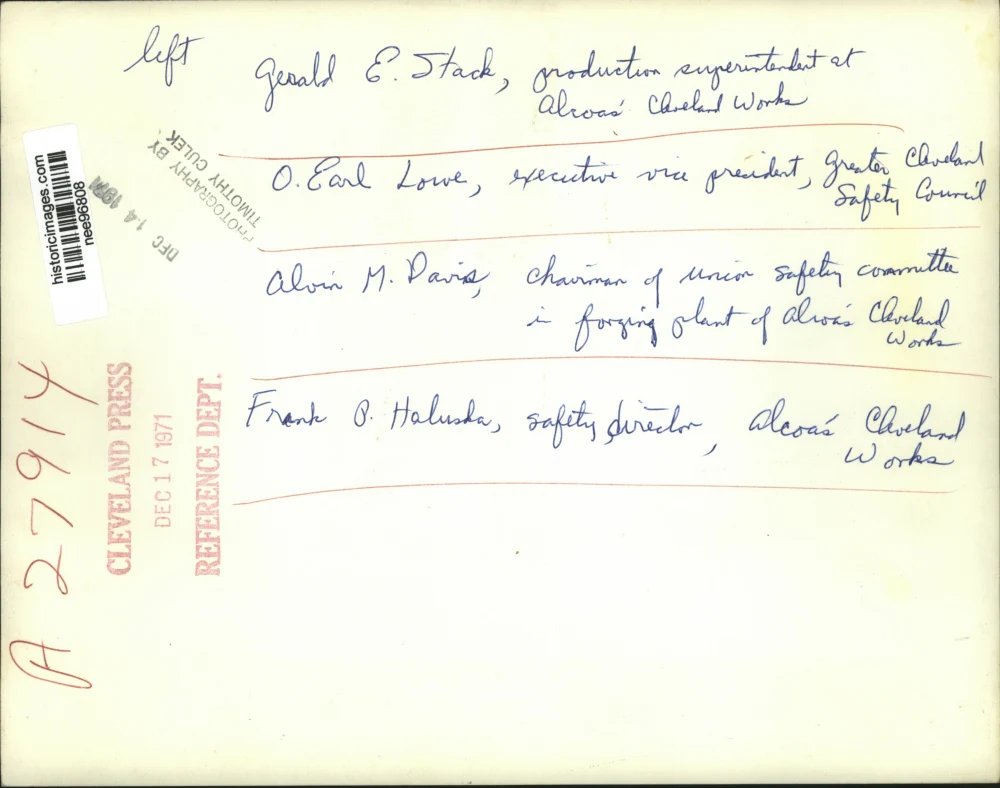 left
Gerald E. Stack, production superintendent at
Alcoas' Cleveland Works
O. Earl Lowe, executive vice president, Greater Cleveland
Safety Council
Alvin M. Davis, chairman of union safety committee
in forging plant of Alcoa's Cleveland
Works
Frank P. Haluska, safety director, Alcoa's Cleveland
Works
historicimages.com
nee96808
PHOTOGRAPHY BY
TIMOTHY CULEK
DEC 14 1971
A 27914
CLEVELAND PRESS
DEC 17 1971
REFERENCE DEPT.